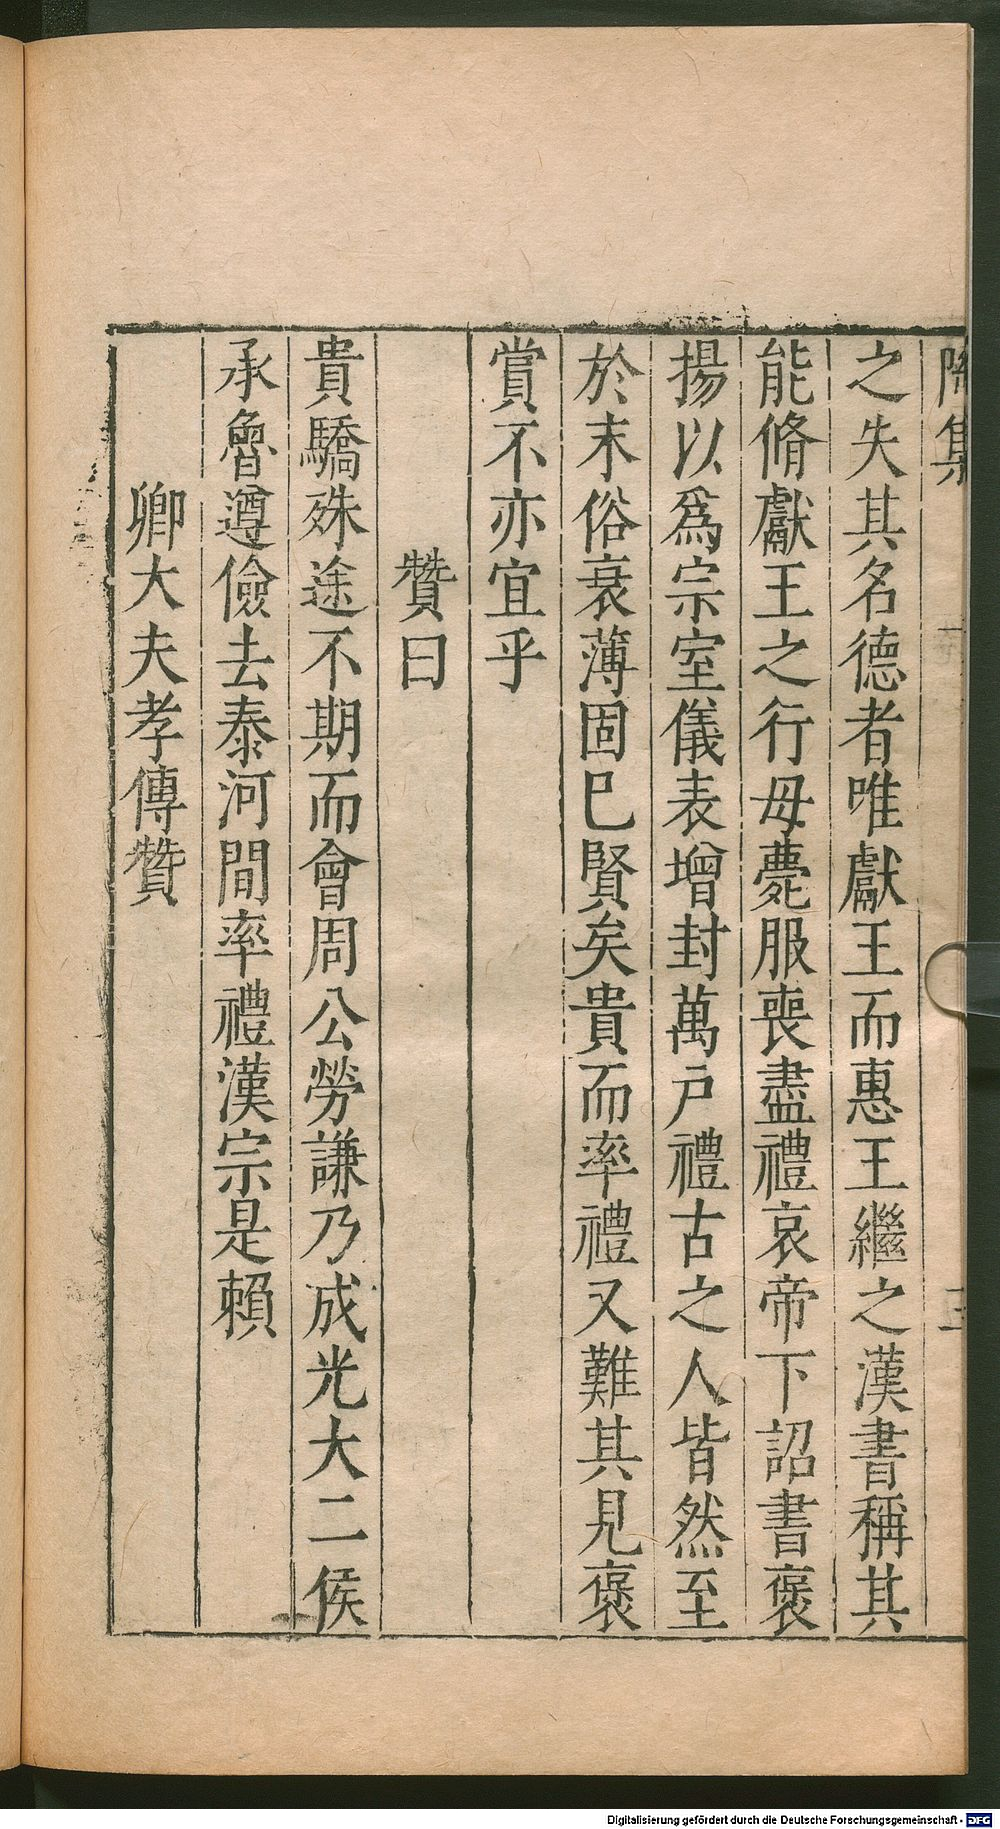 陶集
之失其名德者唯獻王而惠王繼之漢書稱其
能脩獻王之行母薨服喪盡禮哀帝下詔書褒
揚以爲宗室儀表增封萬戶禮古之人皆然至
於末俗衰薄固已賢矣貴而率禮又難其見褒
賞不亦宜乎
贊曰
貴驕殊途不期而會周公勞謙乃成光大二侯
承魯遵儉去泰河間率禮漢宗是賴
卿大夫孝傳贊
Digitalisierung gefördert durch die Deutsche Forschungsgemeinschaft - DFG